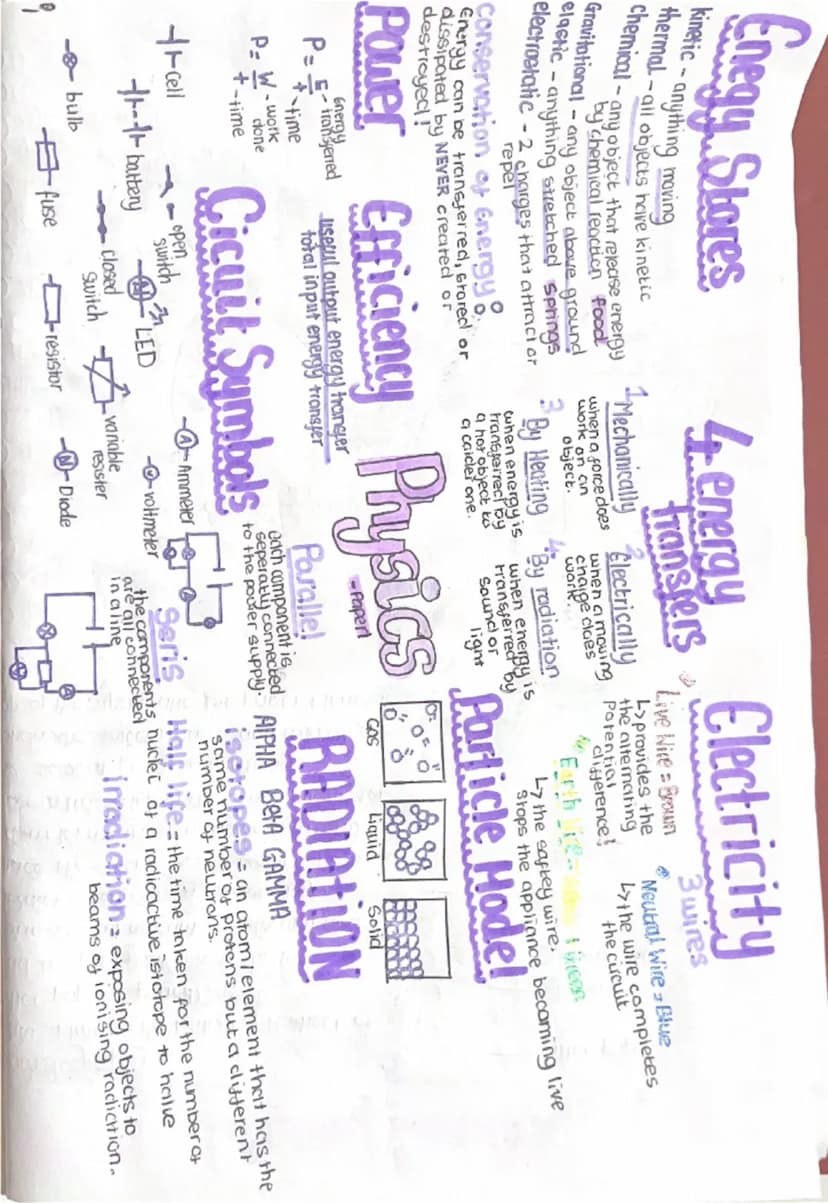 Enegy Stores
kinetic - anything moving
thermal - all objects have kinetic
chemical - any object that release energy
by chemical reaction food
Gravitational - any object above ground
elastic - anything stretched springs
electrostatic - 2 charges that attract or
repel
conservation of Energy
Energy can be transferred, stored or
dissipated by NEVER created or
destroyed!
4 energy
transfers
1 Mechanically
when a force does
work on an
object.
2 Electrically
when a moving
charge does
work
3 By Heating
when energy is
transferred by
a hot object to
a colder one.
4. By radiation
when energy is
transferred by
sound or
light
Electricity
3 wires
Live Wire = Brown
↳ provides the
the alternating
potential
difference!
Neutral Wire = Blue
↳ the wire completes
the circuit
Earth Wire = green
↳ the saftey wire.
stops the appliance becoming live
Power
P = E - Energy transferred
t - time
P = W - work done
t - time
Efficiency
useful output energy transfer
total input energy transfer
Physics
- Paper 1
Particle Model
Gas
Liquid
Solid
Cicuit Symbols
cell
battery
open
switch
closed
switch
LED
A Ammeter
V voltmeter
bulb
fuse
resistor
variable
resister
Diode
Parallel
each component is
seperatly connected
to the power supply.
Seris
the components
are all connected
in a line
RADIATION
AlPHA BetA GAMMA
isotopes = an atom/element that has the
same number of protons but a different
number of neutrons.
Half life = the time taken for the number of
nuclei of a radioactive istotope to halve
irradiation = exposing objects to
beams of ionising radiation.